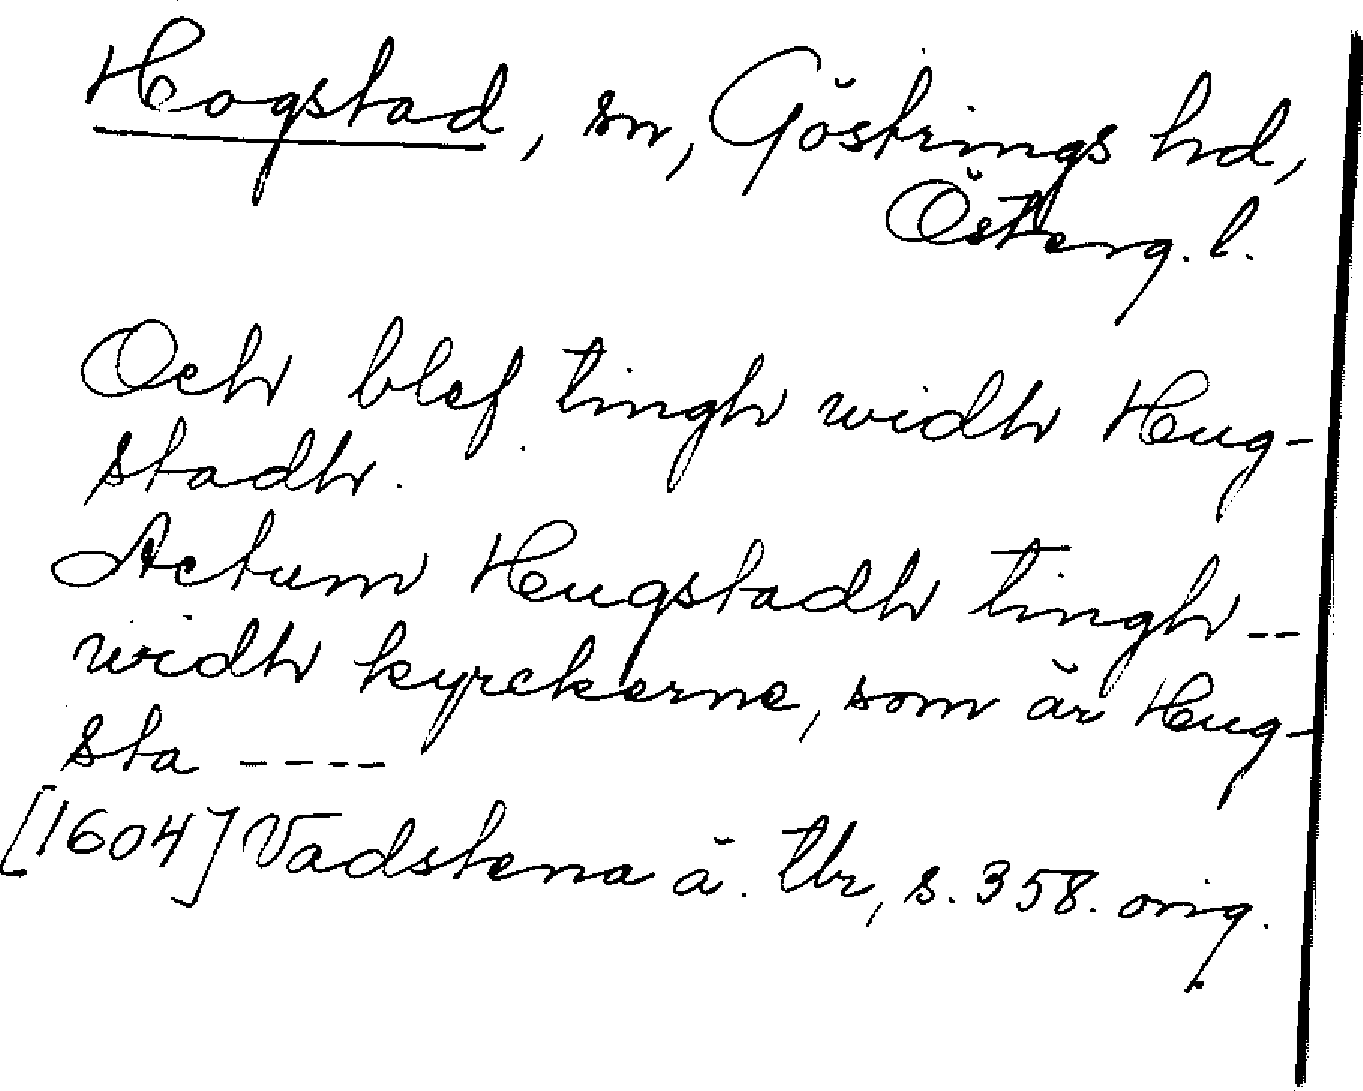 Hogstad, sn, Göstrings hd,
Österg. l.
Och blef tingh widh Hug-
stadh.
Actum Hugstadh tingh --
widh kyrckerne, som är Hug-
sta ----
[1604] Vadstena ä. tbr, s. 358. orig.